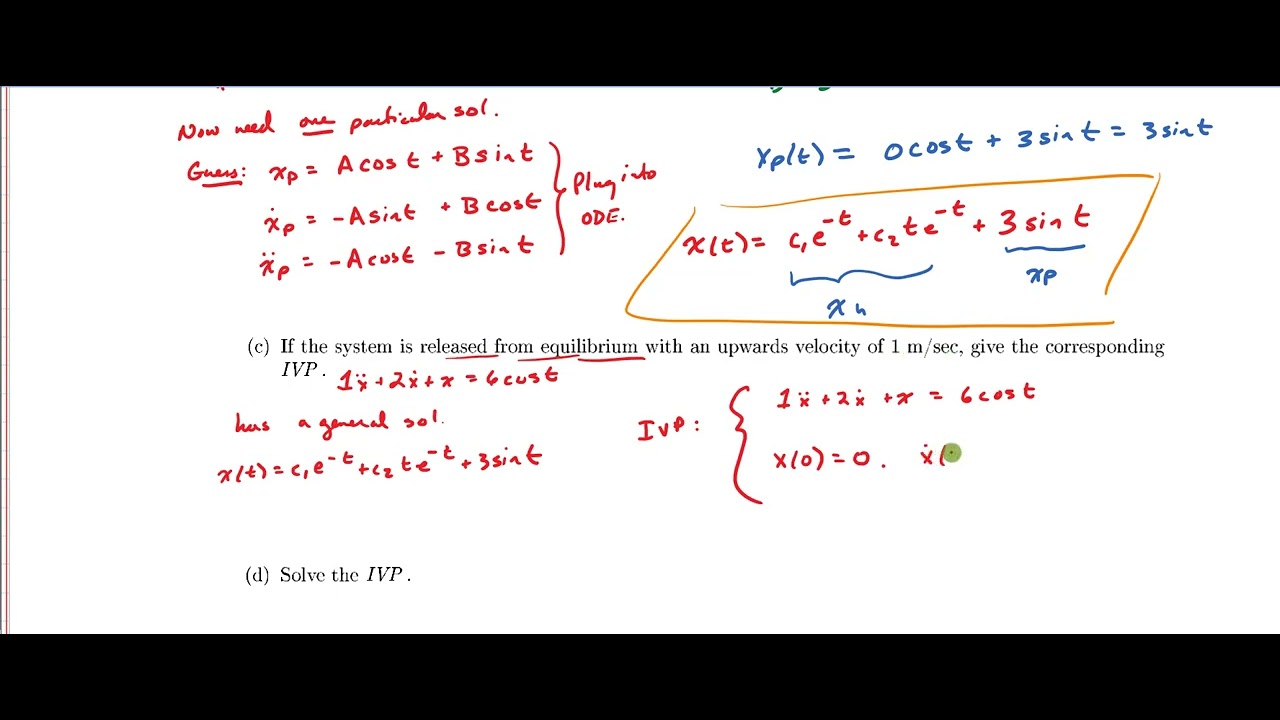 Now need one particular sol.
Guess: xₚ = A cos t + B sin t
ẋₚ = -A sin t + B cos t
ẍₚ = -A cos t - B sin t
Plug into
ODE.
xₚ(t) = 0 cos t + 3 sin t = 3 sin t
x(t) = c₁e^{-t} + c₂te^{-t} + 3 sin t
xₕ
xₚ
(c) If the system is released from equilibrium with an upwards velocity of 1 m/sec, give the corresponding
IVP.
1ẍ + 2ẋ + x = 6 cos t
has a general sol.
x(t) = c₁e^{-t} + c₂te^{-t} + 3 sin t
IVP:
1ẍ + 2ẋ + x = 6 cos t
x(0) = 0. ẋ(
(d) Solve the IVP.